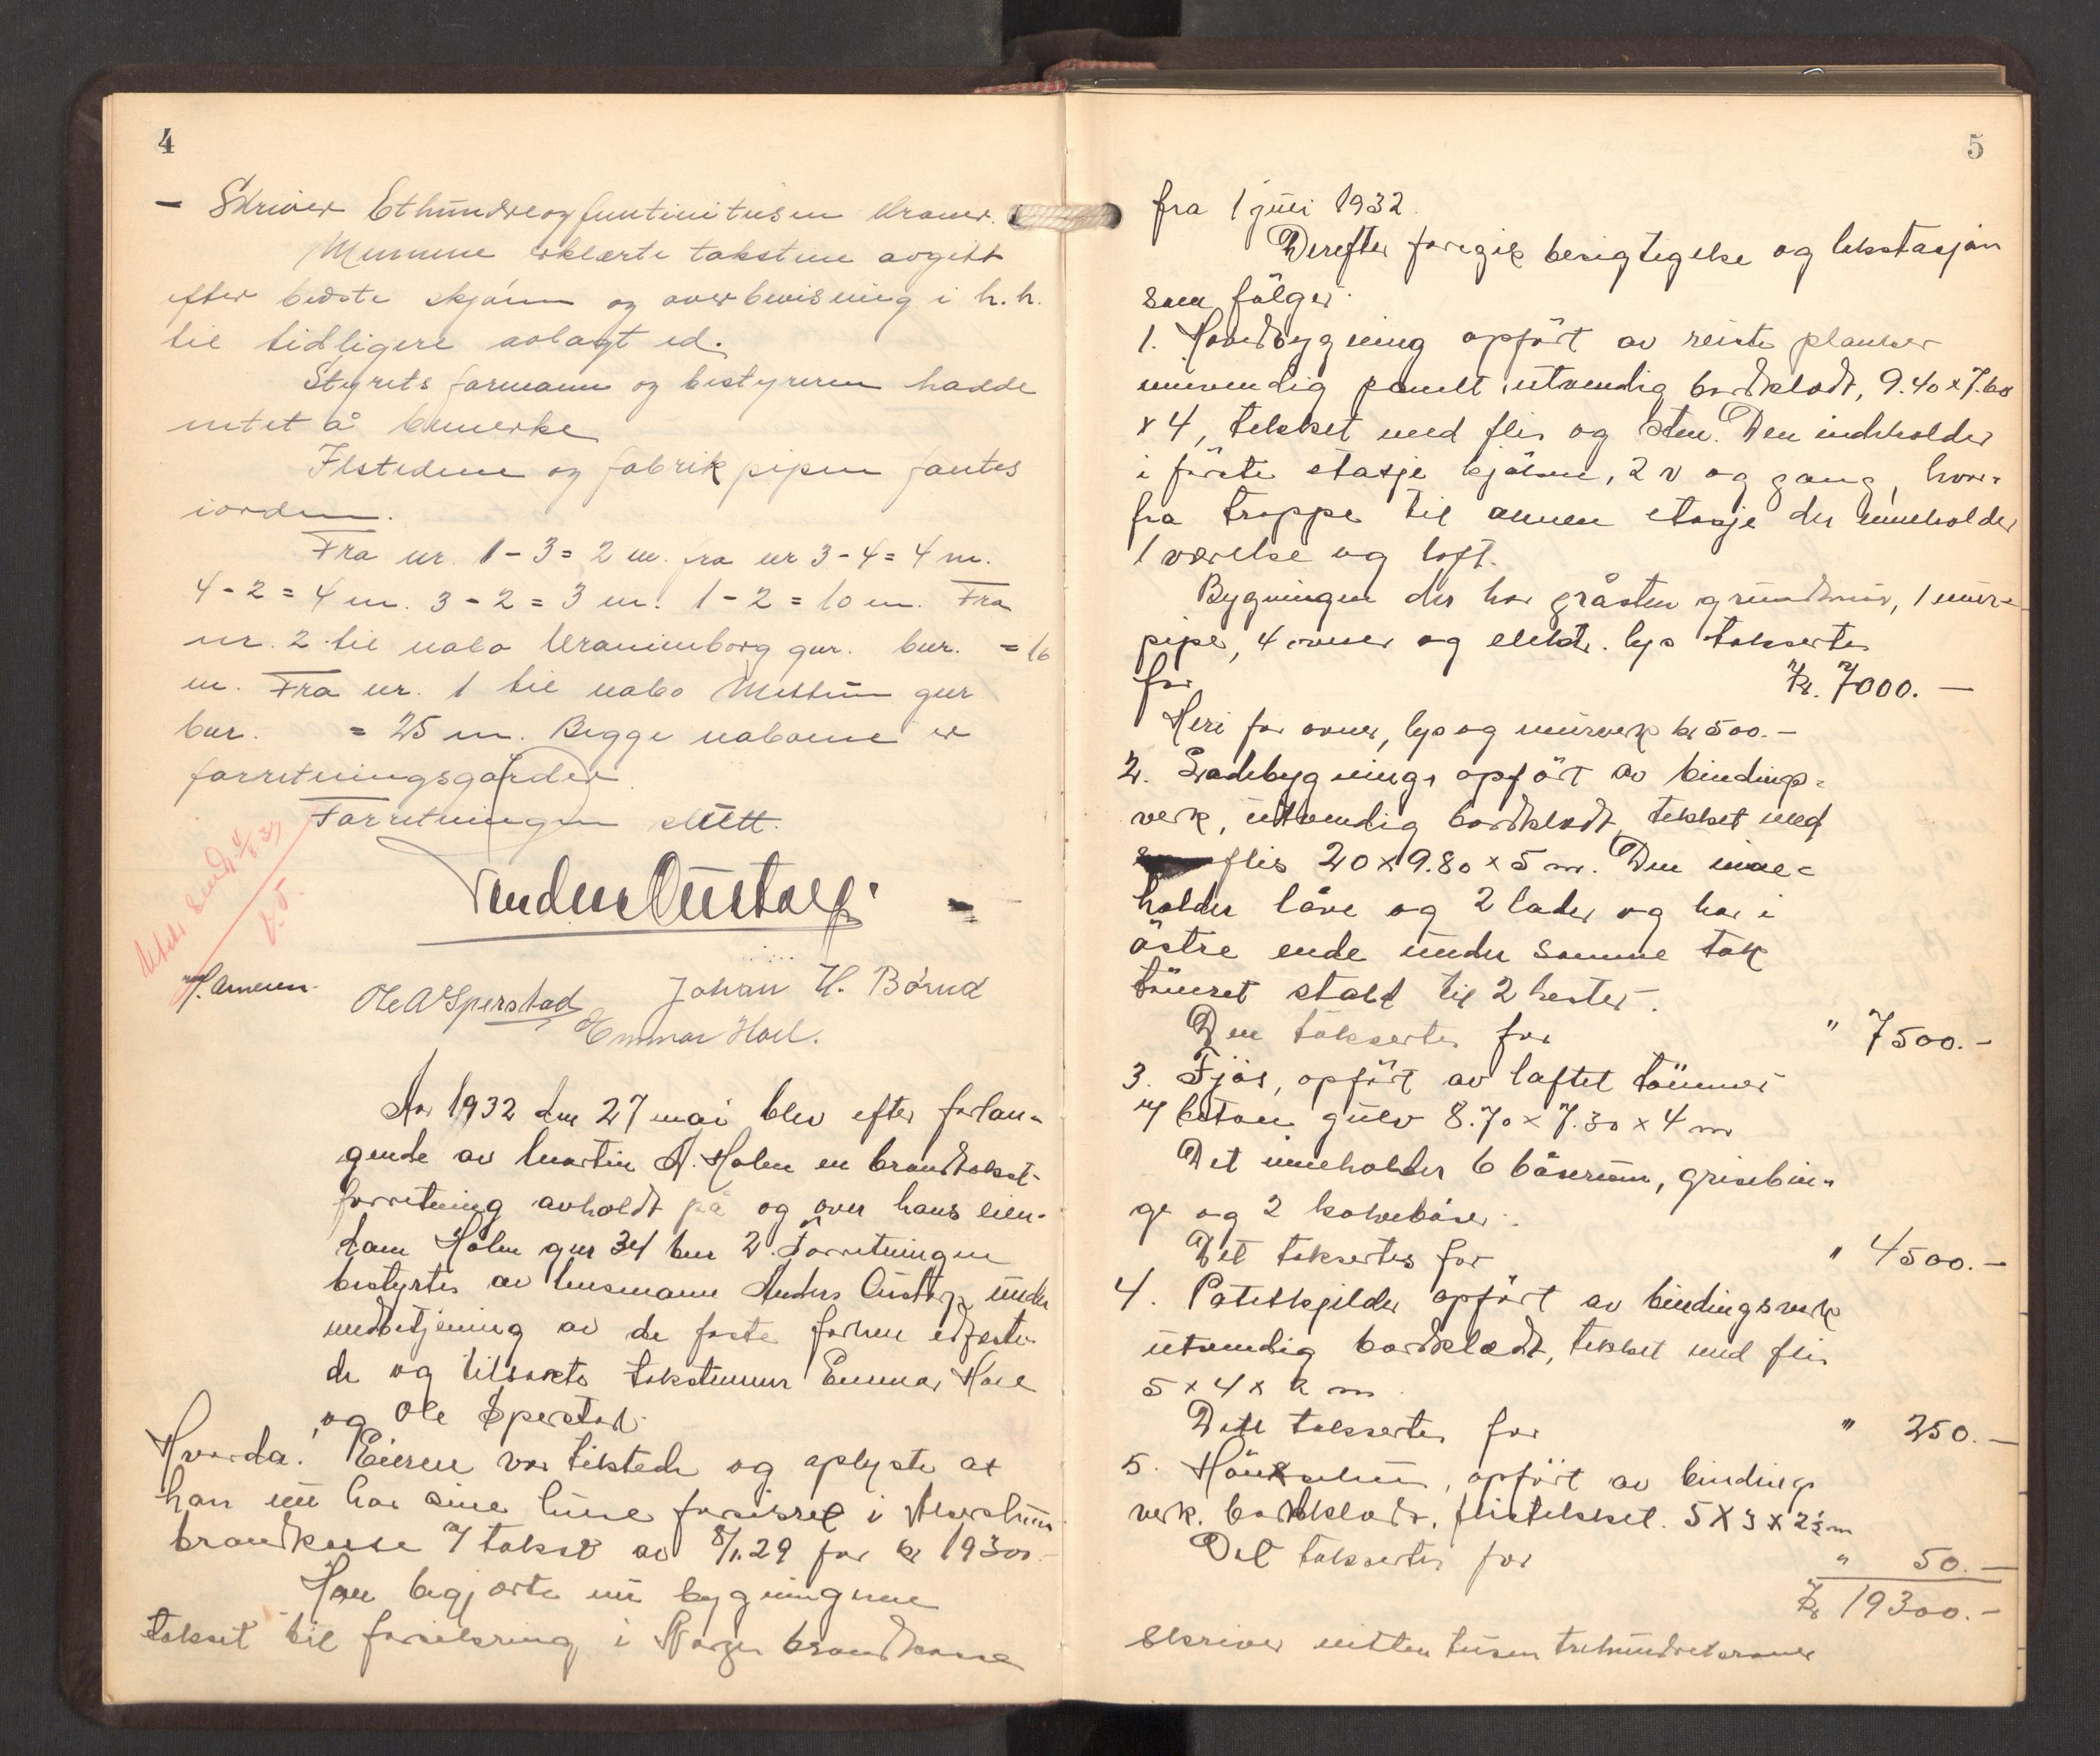 4
- Skriver Ethundreogfemtinitusen kroner.
Mennene erklærte takstene avgitt
efter bedste skjønn og overbevisning i h.h.
til tidligere avlagt ed.
Styrets formann og bestyreren hadde
intet å bemerke
Ilstedene og fabrikpipen fantes
iorden.
Fra nr. 1-3 = 2 m. fra nr 3-4 = 4 m.
4-2 = 4 m. 3-2 = 3 m. 1-2 = 10 m. Fra
nr. 2 til nabo Uranienborg gnr. bnr. = 16
m. Fra nr. 1 til nabo gnr
bnr. = 25 m. Begge naboene er
forretningsgårder.
Forretningen slutt.
Utskr. send.
Ole A Sperstad
Johan H. Börnd
Emmar Hoel.
Aar 1932 den 27 mai blev efter forlan-
gende av Martin A. Holm en brandtakst-
forretning avholdt på og over hans eien-
dom Holm gnr 34 bnr 2. Forretningen
bestyrtes av lensmann Anders under
medbetjening av de faste forhen edfeste-
de og tilsakte takstmenn Emmar Hoel
og Ole Sperstad.
Hvorda: Eieren var tilstede og oplyste at
han nu har sine huse forsikret i
brandkasse if takst av 8/1.29 for kr 19300.-
Han begjærte nu bygningene
takset til forsikring i Norges brandkasse
5
fra 1 juli 1932.
Derefter foregik besigtigelse og takstasjon
som følger.
1. Hovedbygning opført av reiste planker
innvendig panelt utvendig bordklædt, 9.40 x 7.60
x 4, tekket med flis og sten. Den indeholder
i første etasje kjøkken, 2 v og gang, hvor-
fra trappe til annen etasje der inneholder
1 værelse og loft.
Bygningen der har gråsten grundmur, 1 mur-
pipe, 4 ovner og elektr. lys taksertes
for Kr. 7000.-
Heri for ovner, lys og murverk kr 500.-
2. Ladebygning opført av bindings-
verk, utvendig bordklædt, tekket med
flis 20 x 9.80 x 5 m. Den inne-
holder låve og 2 lader og har i
østre ende under samme tak
tømret stald til 2 hester.
Den taksertes for " 7500.-
3. Fjøs, opført av laftet tømmer
m/ beton gulv 8.70 x 7.30 x 4 m
Det inneholder 6 båserum, grisebin-
ge og 2 kalvebåser.
Det taksertes for " 4500.-
4. Potetkjelder opført av bindingsverk
utvendig bordklædt, tekket med flis
5 x 4 x 2 m
Den taksertes for " 250.-
5. Hönsehus, opført av bindings
verk, bordklædt, flistekket. 5 x 3 x 2½ m
Det taksertes for " 50.-
Kr 19300.-
Skriver nitten tusen trehundrekroner